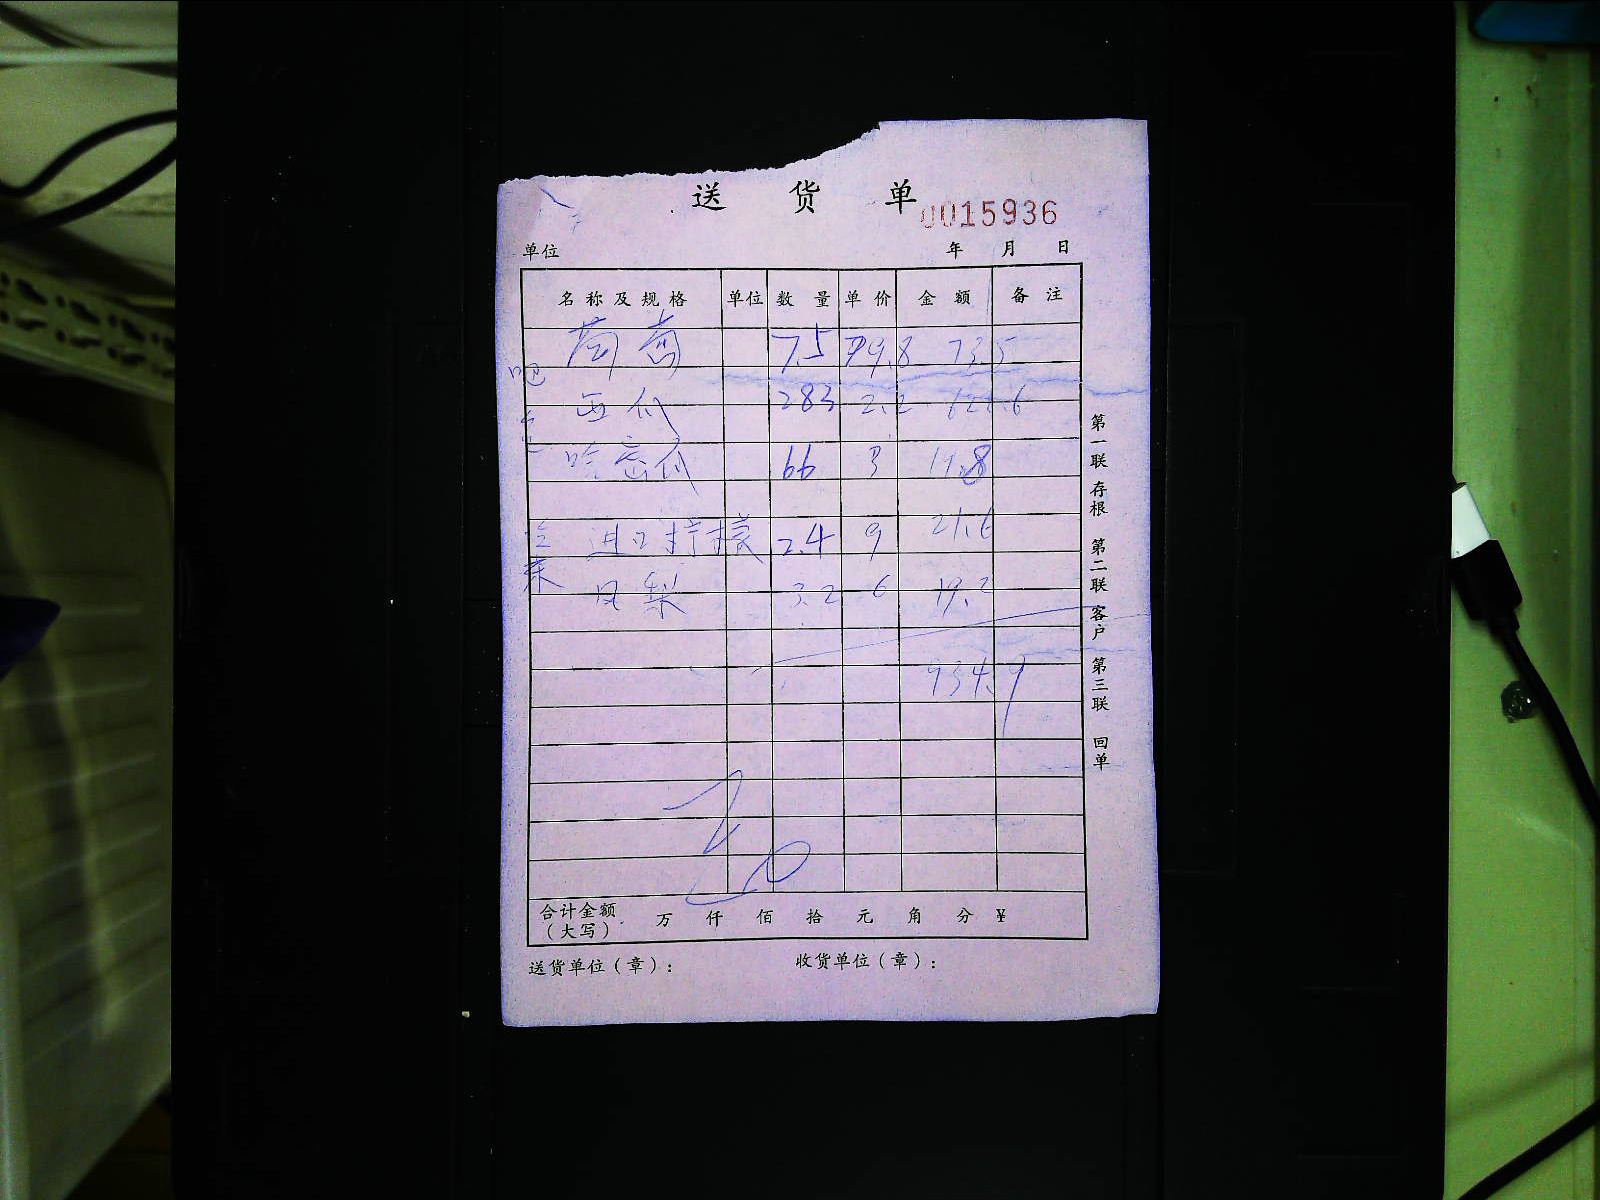 送 货 单
0015936
单位 年 月 日
名称及规格 单位 数量 单价 金额 备注
7.5 9.8 73.5
西瓜 283 2.2 622.6
吧
哈密瓜 66 3
进口柠檬 2.4 9 21.6
凤梨 3.2 6 19.2
934.9
合计金额（大写） 万 仟 佰 拾 元 角 分 ¥
送货单位（章）： 收货单位（章）：
第一联 存根 第二联 客户 第三联 回单